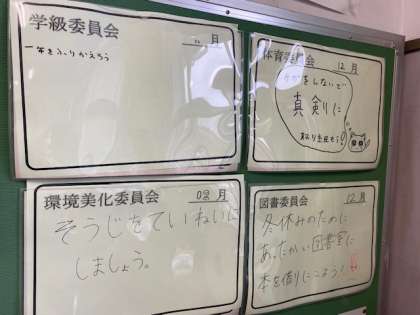 学級委員会 月
一年をふりかえろう
体育委員会 12月
ケガをしないで
真剣に
取り組もう!
環境美化委員会 09月
そうじをていねいに
しましょう。
図書委員会 12月
冬休みのために
あったかい図書室に
本を借りにこよう!